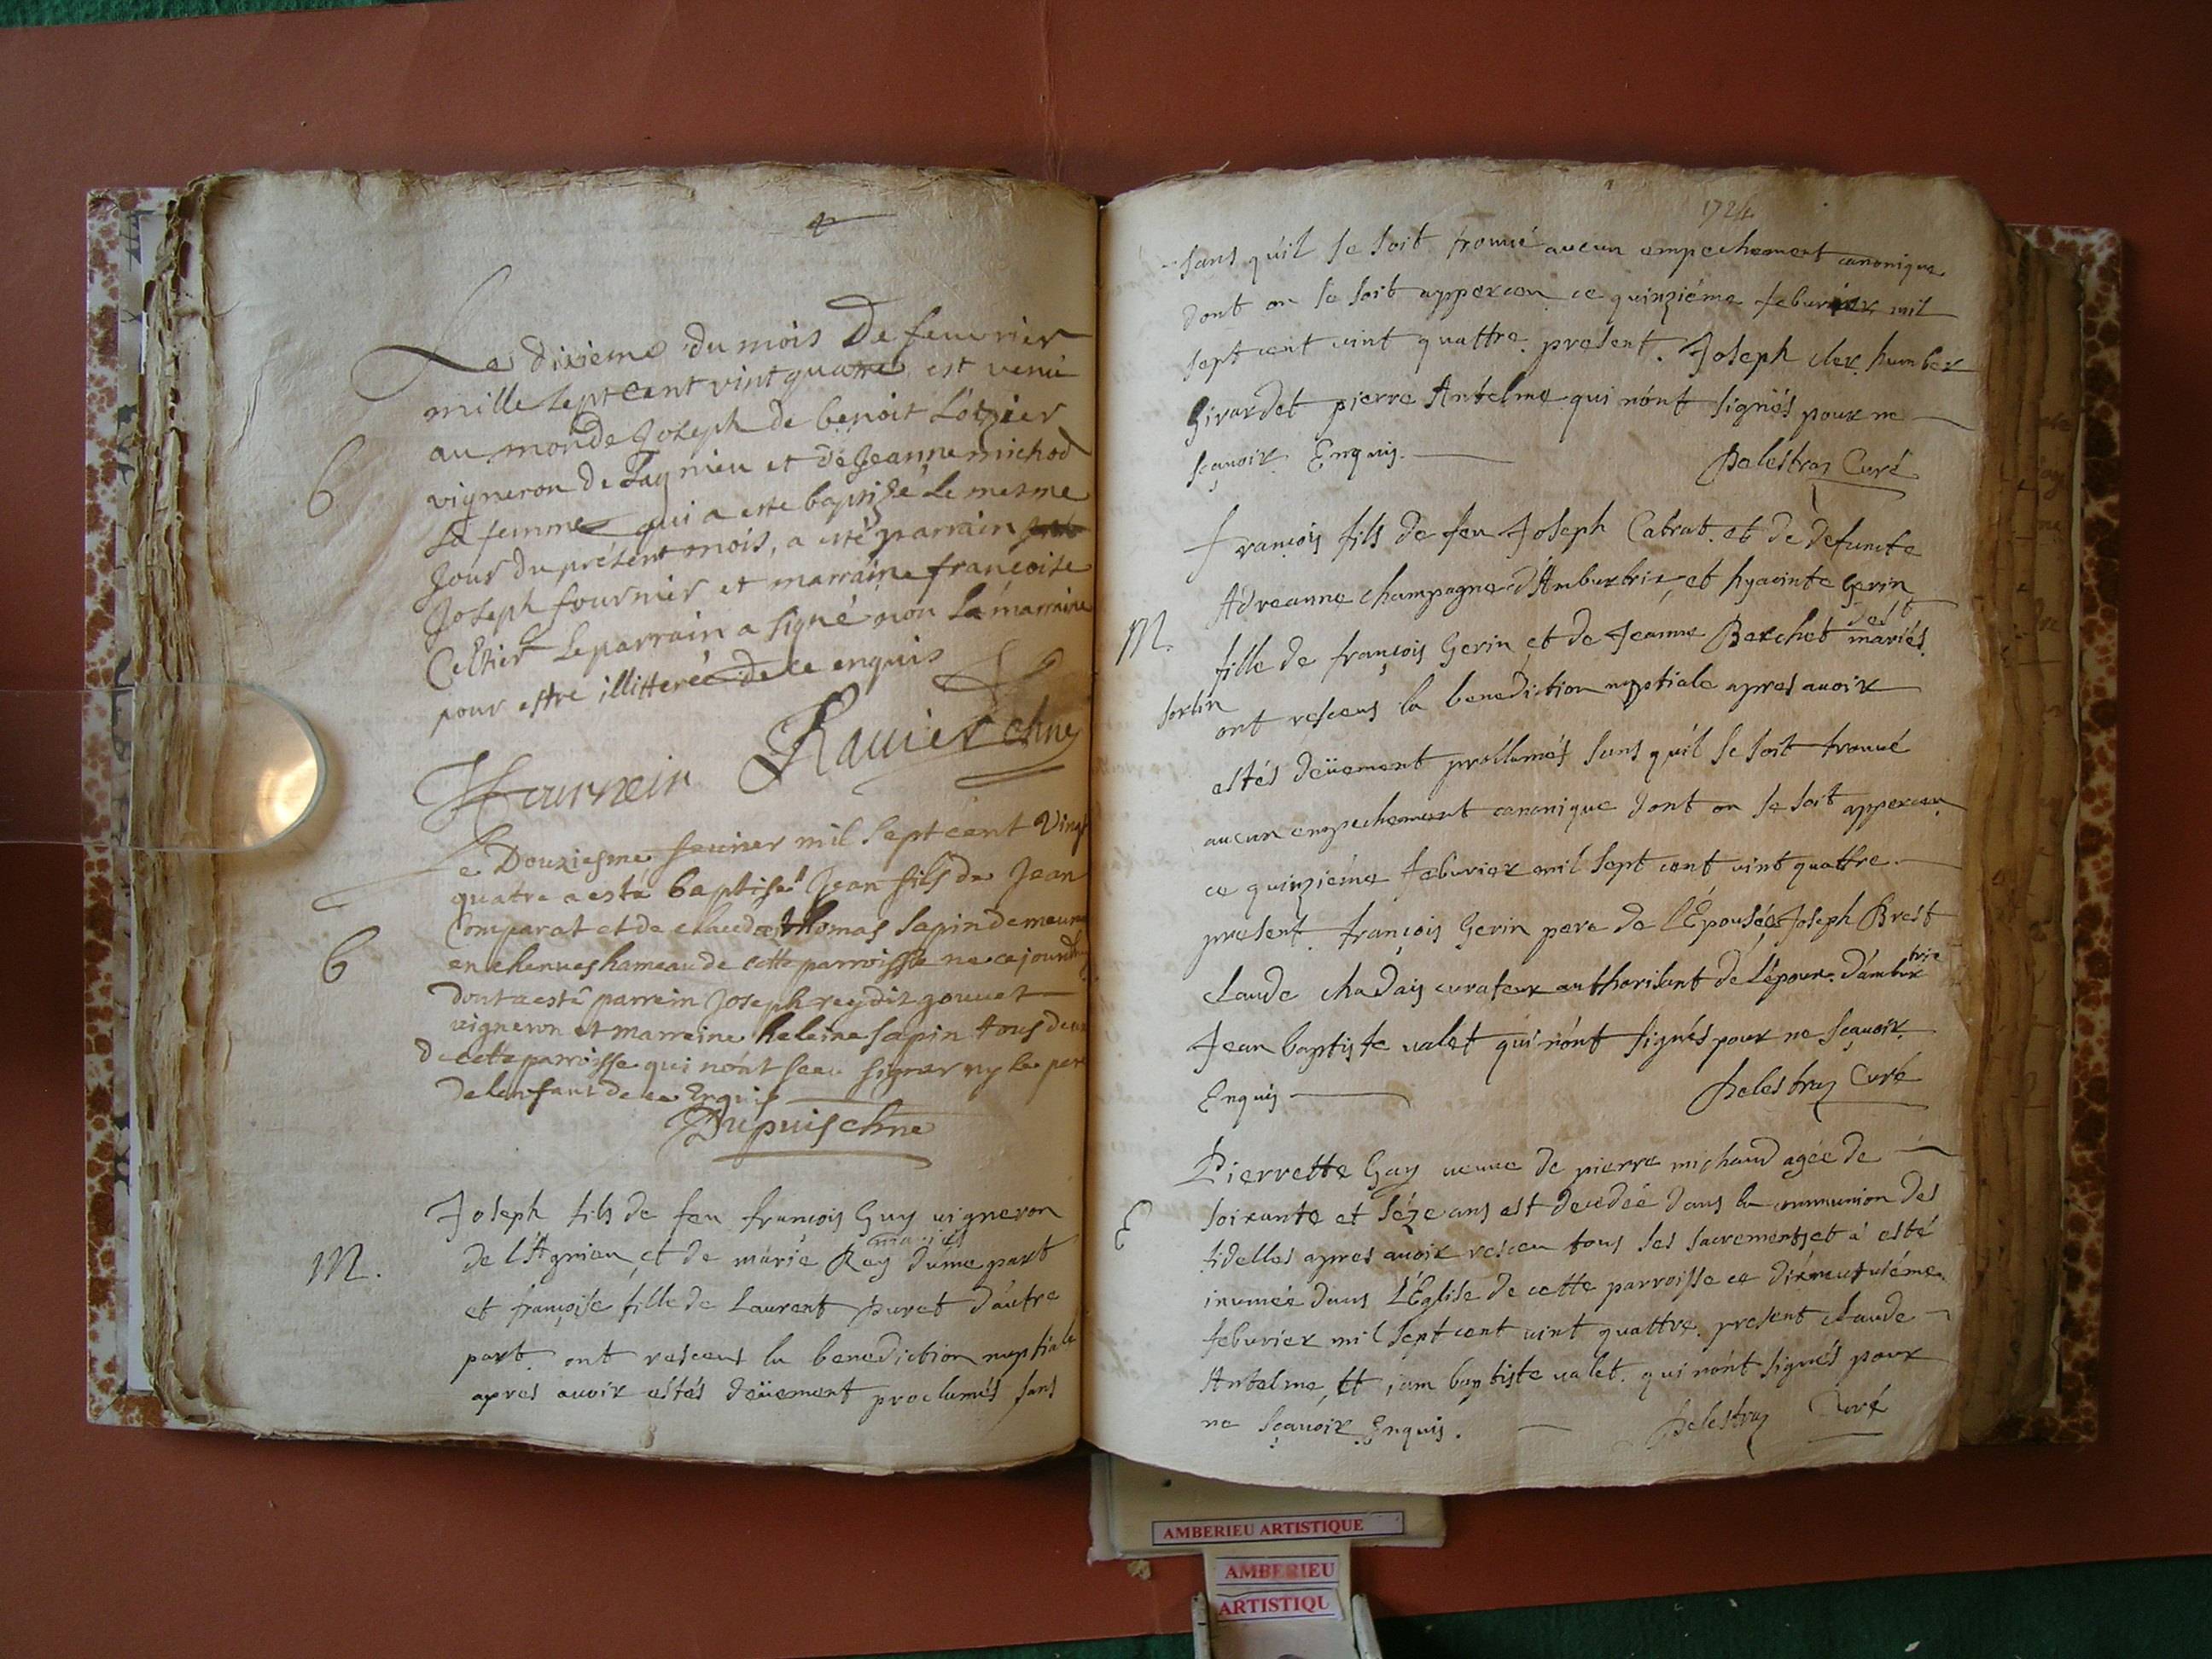 Le dixieme du mois De feuvrier
mille sept cent vint quatre est venu
au monde Joseph de benoit Lozier
B
vigneron de Lagnieu et de Jeanne michod
sa femme qui a este baptizé le mesme
Jour du présent mois, a esté parrain
Joseph fournier et marraine françoise
Celtier le parrain a signé non la marraine
pour estre illitterée de ce enquis
Ravier
Le Douziesme feuvrier mil sept cent Vingt
quatre a esté baptisé Jean fils de Jean
Comparat et de clauda thomas sapin demeurant
B
en chenues hameau de cette parroisse ne ce jourdhuy
dont a esté parrein Joseph rey dit gouuet
vigneron et marreine heleine sapin tous deux
de cette parroisse qui n'ont sceu signer ny le pere
de lenfant de ce Enquis
Dupuis
Joseph fils de feu françois Guy vigneron
mariés
M.
de l'Agnieu, et de marie Rey d'une part
et françoise fille de Laurent Duret d'autre
part. ont resceus la benediction nuptiale
apres avoir estés deüement proclamés sans
1724
sans qu'il se soit trouué aucun empechement canonique
dont on se soit apperceu ce quinziéme feburier mil
sept cent vint quattre. present. Joseph cler. humber
Girardet pierre Antelme qui n'ont signés pour ne
sçauoir Enquis.
Delestraz Curé
françois fils de feu Joseph Cabrat. et de defuncte
Adreanne champagne d'Ambutrix, et hyacinte Gerin
M.
fille de françois Gerin et de Jeanne Berchet mariés.
dest
sorlin
ont resceus la benediction nuptiale apres auoir
estés deüement proclamés sans qu'il se soit trouué
aucun empechement canonique dont on se soit apperceu
ce quinziéme feburier mil sept cent vint quattre.
present. françois Gerin pere de l'Epousée Joseph Brest
claude chadais curateur authorisant de l'époux. d'ambutrix
Jean baptiste valet qui n'ont signés pour ne sçauoir
Enquis
Delestraz Curé
Pierrette Guy veuue de pierre michaud agée de
E
soixante et séze ans est decedée dans la communion des
fidelles apres auoir resceu tous ses sacrements et a esté
inumée dans l'Eglise de cette parroisse ce dixneufuiéme
feburier mil sept cent vint quattre. present claude
Antelme, et jean baptiste valet. qui n'ont signés pour
ne sçauoir Enquis.
Delestraz Curé
AMBERIEU ARTISTIQUE
AMBERIEU
ARTISTIQU